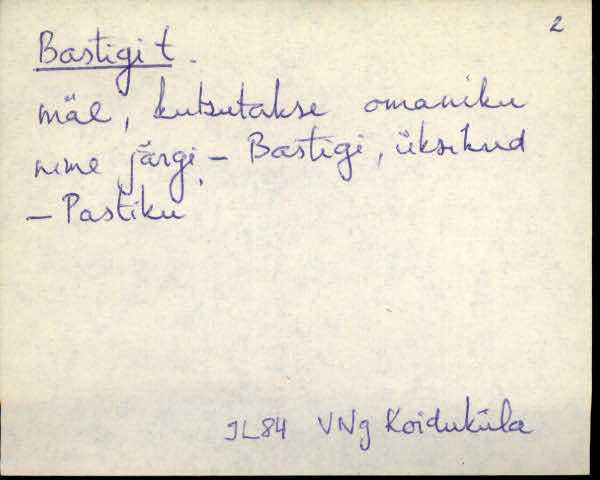 2
Bastigi t.
mäe, kutsutakse omaniku
nime järgi, - Bastigi, üksikud
- Pastiku
JL84 VNg Koiduküla